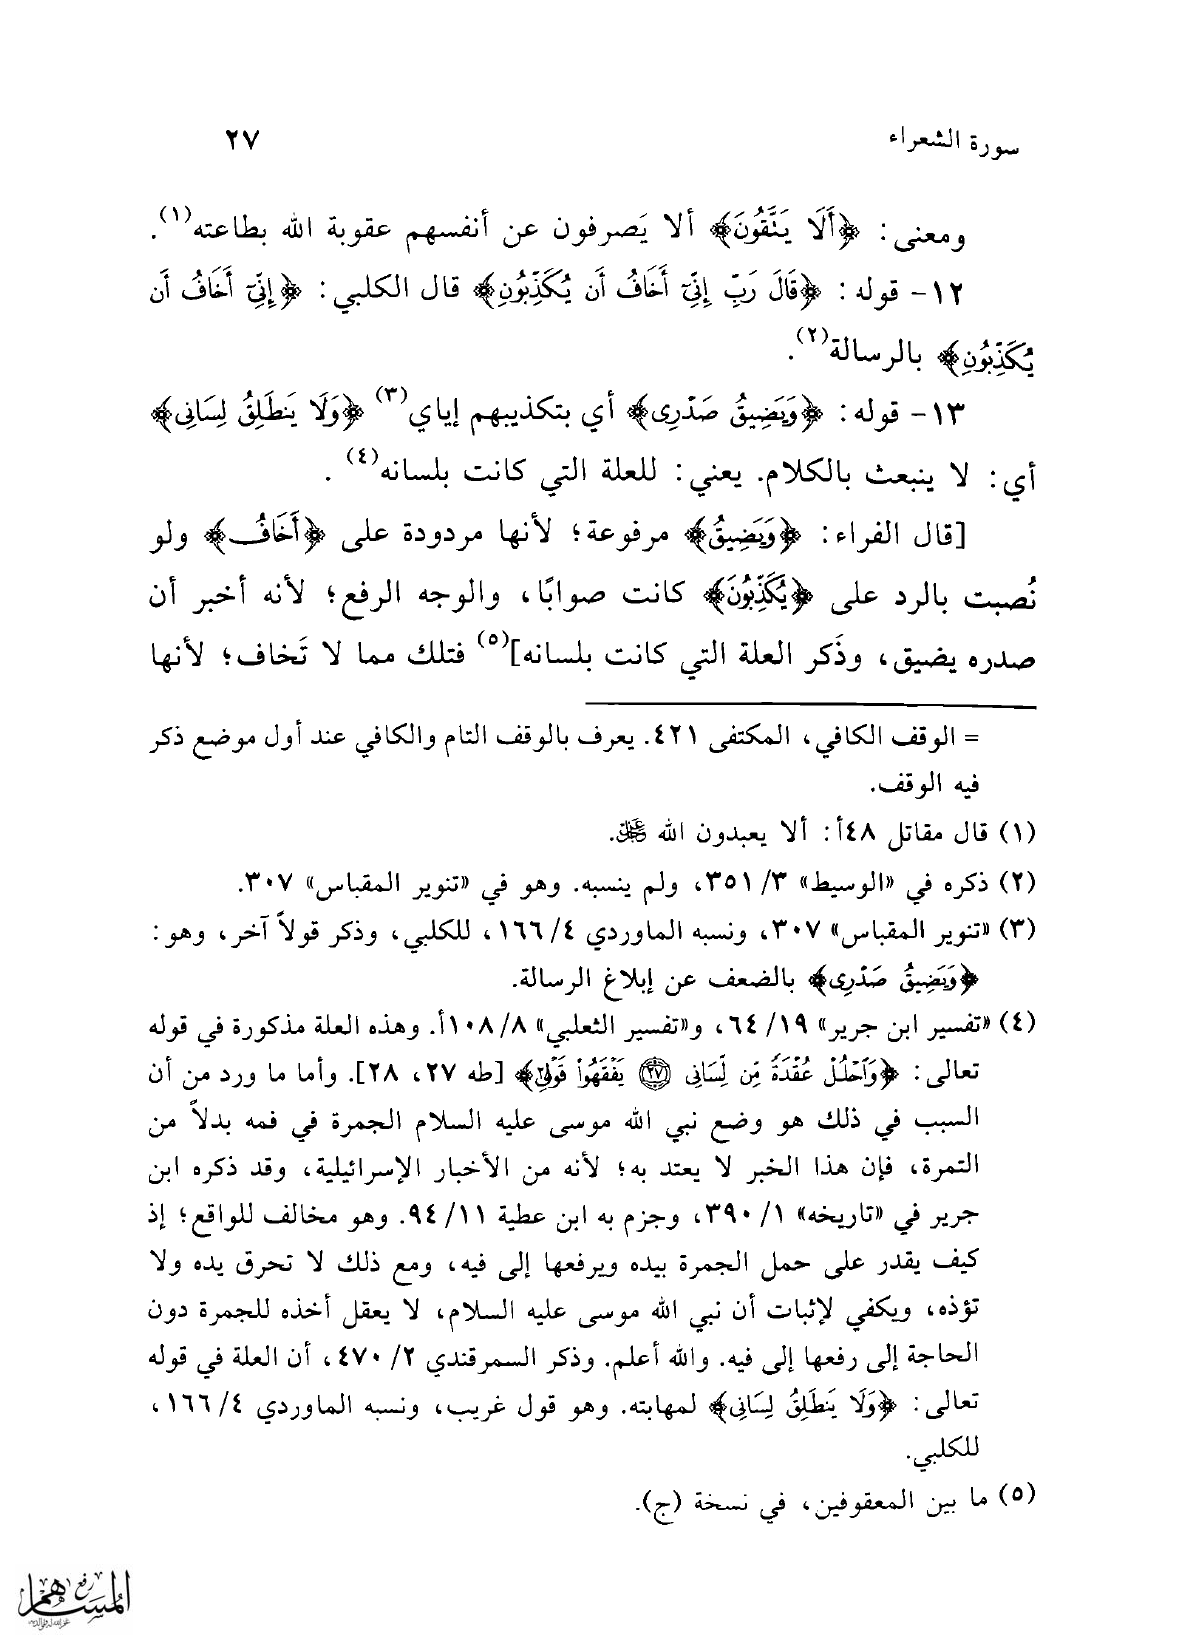 سورة الشعراء ٢٧
ومعنى: ﴿أَلَا يَتَّقُونَ﴾ ألا يَصرفون عن أنفسهم عقوبة الله بطاعته(١).
١٢- قوله: ﴿قَالَ رَبِّ إِنِّيٓ أَخَافُ أَن يُكَذِّبُونِ﴾ قال الكلبي: ﴿إِنِّيٓ أَخَافُ أَن
يُكَذِّبُونِ﴾ بالرسالة(٢).
١٣- قوله: ﴿وَيَضِيقُ صَدْرِى﴾ أي بتكذيبهم إياي(٣) ﴿وَلَا يَنطَلِقُ لِسَانِى﴾
أي: لا ينبعث بالكلام. يعني: للعلة التي كانت بلسانه(٤).
[قال الفراء: ﴿وَيَضِيقُ﴾ مرفوعة؛ لأنها مردودة على ﴿أَخَافُ﴾ ولو
نُصبت بالرد على ﴿يُكَذِّبُونَ﴾ كانت صوابًا، والوجه الرفع؛ لأنه أخبر أن
صدره يضيق، وذَكر العلة التي كانت بلسانه](٥) فتلك مما لا تَخاف؛ لأنها
= الوقف الكافي، المكتفى ٤٢١. يعرف بالوقف التام والكافي عند أول موضع ذكر
فيه الوقف.
(١) قال مقاتل ٤٨أ: ألا يعبدون الله ﷿.
(٢) ذكره في «الوسيط» ٣/ ٣٥١، ولم ينسبه. وهو في «تنوير المقباس» ٣٠٧.
(٣) «تنوير المقباس» ٣٠٧، ونسبه الماوردي ٤/ ١٦٦، للكلبي، وذكر قولاً آخر، وهو:
﴿وَيَضِيقُ صَدْرِى﴾ بالضعف عن إبلاغ الرسالة.
(٤) «تفسير ابن جرير» ١٩/ ٦٤، و«تفسير الثعلبي» ٨/ ١٠٨أ. وهذه العلة مذكورة في قوله
تعالى: ﴿وَٱحْلُلْ عُقْدَةً مِّن لِّسَانِى ۝٢٧ يَفْقَهُوا۟ قَوْلِى﴾ [طه ٢٧، ٢٨]. وأما ما ورد من أن
السبب في ذلك هو وضع نبي الله موسى عليه السلام الجمرة في فمه بدلاً من
التمرة، فإن هذا الخبر لا يعتد به؛ لأنه من الأخبار الإسرائيلية، وقد ذكره ابن
جرير في «تاريخه» ١/ ٣٩٠، وجزم به ابن عطية ١١/ ٩٤. وهو مخالف للواقع؛ إذ
كيف يقدر على حمل الجمرة بيده ويرفعها إلى فيه، ومع ذلك لا تحرق يده ولا
تؤذه، ويكفي لإثبات أن نبي الله موسى عليه السلام، لا يعقل أخذه للجمرة دون
الحاجة إلى رفعها إلى فيه. والله أعلم. وذكر السمرقندي ٢/ ٤٧٠، أن العلة في قوله
تعالى: ﴿وَلَا يَنطَلِقُ لِسَانِى﴾ لمهابته. وهو قول غريب، ونسبه الماوردي ٤/ ١٦٦،
للكلبي.
(٥) ما بين المعقوفين، في نسخة (ج).
رفع
المساهم